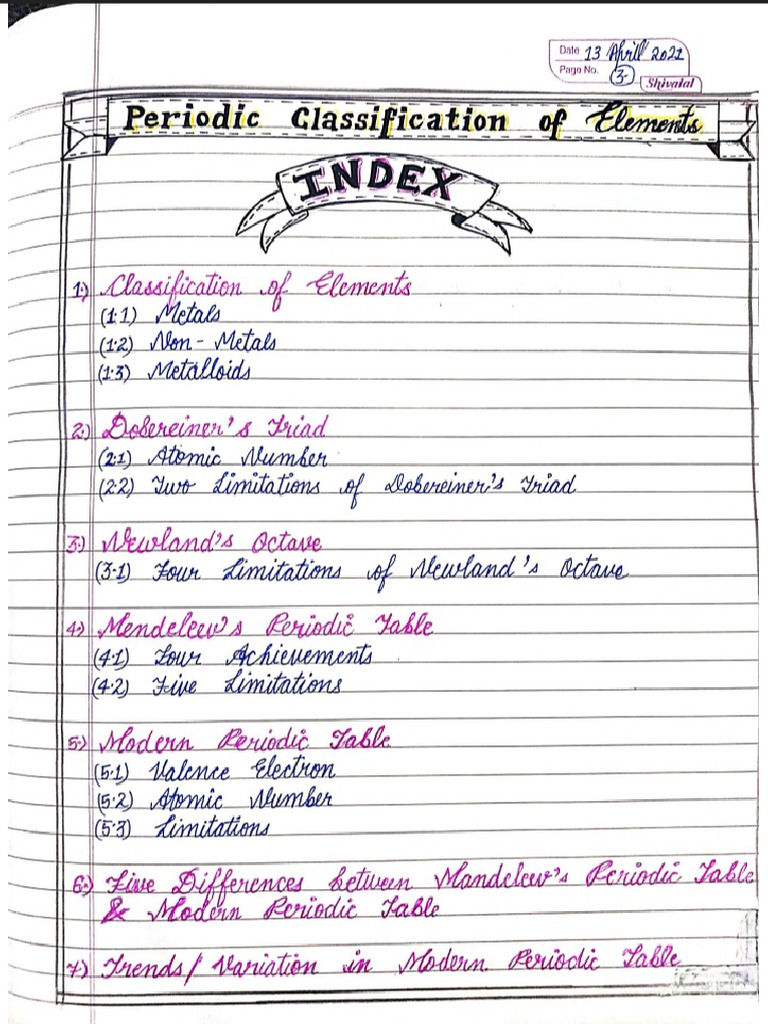 Date 13 April 2021
Page No. 3-
Shivalal
Periodic Classification of Elements
INDEX
1.) Classification of Elements
(1.1) Metals
(1.2) Non-Metals
(1.3) Metalloids
2.) Dobereiner's Triad
(2.1) Atomic Number
(2.2) Two Limitations of Dobereiner's Triad
3.) Newland's Octave
(3.1) Four Limitations of Newland's Octave
4.) Mendeleev's Periodic Table
(4.1) Four Achievements
(4.2) Five Limitations
5.) Modern Periodic Table
(5.1) Valence Electron
(5.2) Atomic Number
(5.3) Limitations
6.) Five Differences between Mandeleev's Periodic Table
& Modern Periodic Table
7.) Trends/Variation in Modern Periodic Table